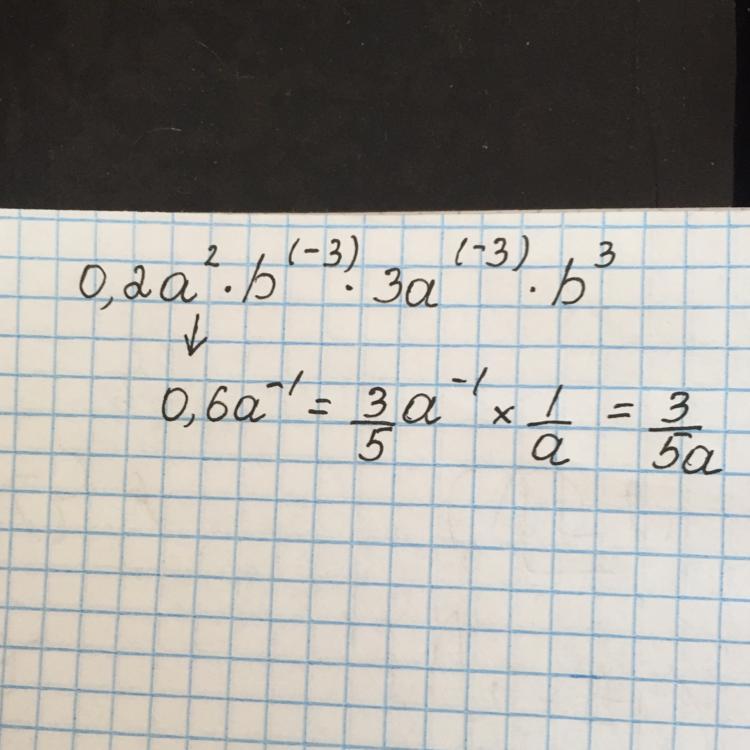 0,2a² · b⁽⁻³⁾ · 3a⁽⁻³⁾ · b³
↓
0,6a⁻¹ = 3/5 a⁻¹ × 1/a = 3/5a